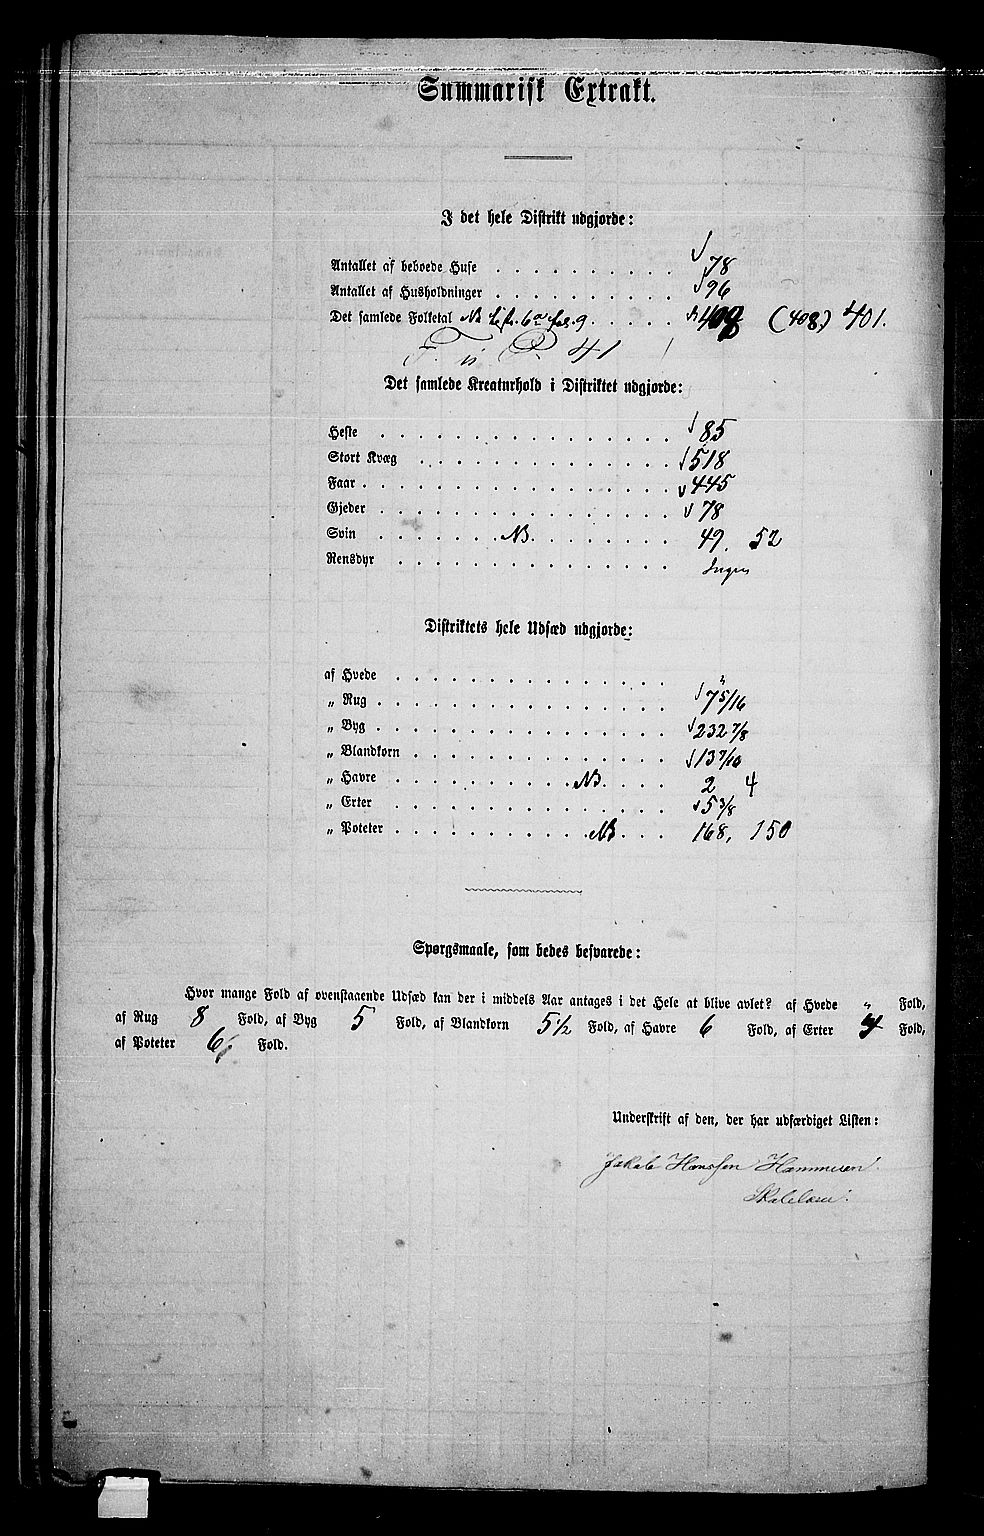 Summarisk Extrakt.
I det hele Distrikt udgjorde:
Antallet af beboede Huse . . . . . . . . . . √ 78
Antallet af Husholdninger . . . . . . . . . . √ 96
Det samlede Folketal NB . . . . . (408.) 401.
41
Det samlede Kreaturhold i Distriktet udgjorde:
Heste . . . . . . . . . . √ 85
Stort Kvæg . . . . . . . . . . √ 518
Faar . . . . . . . . . . √ 445
Gjeder . . . . . . . . . . √ 78
Svin . . . . . NB. . . . . . 49. 52
Rensdyr . . . . . . . . . . Ingen
Distriktets hele Udsæd udgjorde:
af Hvede . . . . . . . . . . "
„ Rug . . . . . . . . . . √ 7 5/16
„ Byg . . . . . . . . . . √ 232 7/8
„ Blandkorn . . . . . . . . . . √ 137/10
„ Havre . . . . . NB. . . . . 2 4
„ Erter . . . . . . . . . . √ 5 3/8
„ Poteter . . . . . NB . . . . 168, 150
Spørgsmaale, som bedes besvarede:
Hvor mange Fold af ovenstaaende Udsæd kan der i middels Aar antages i det Hele at blive avlet? af Hvede " Fold,
af Rug 8 Fold, af Byg 5 Fold, af Blandkorn 5 1/2 Fold, af Havre 6 Fold, af Erter 4 Fold,
af Poteter 6 Fold.
Underskrift af den, der har udfærdiget Listen:
Jakob Hanssen